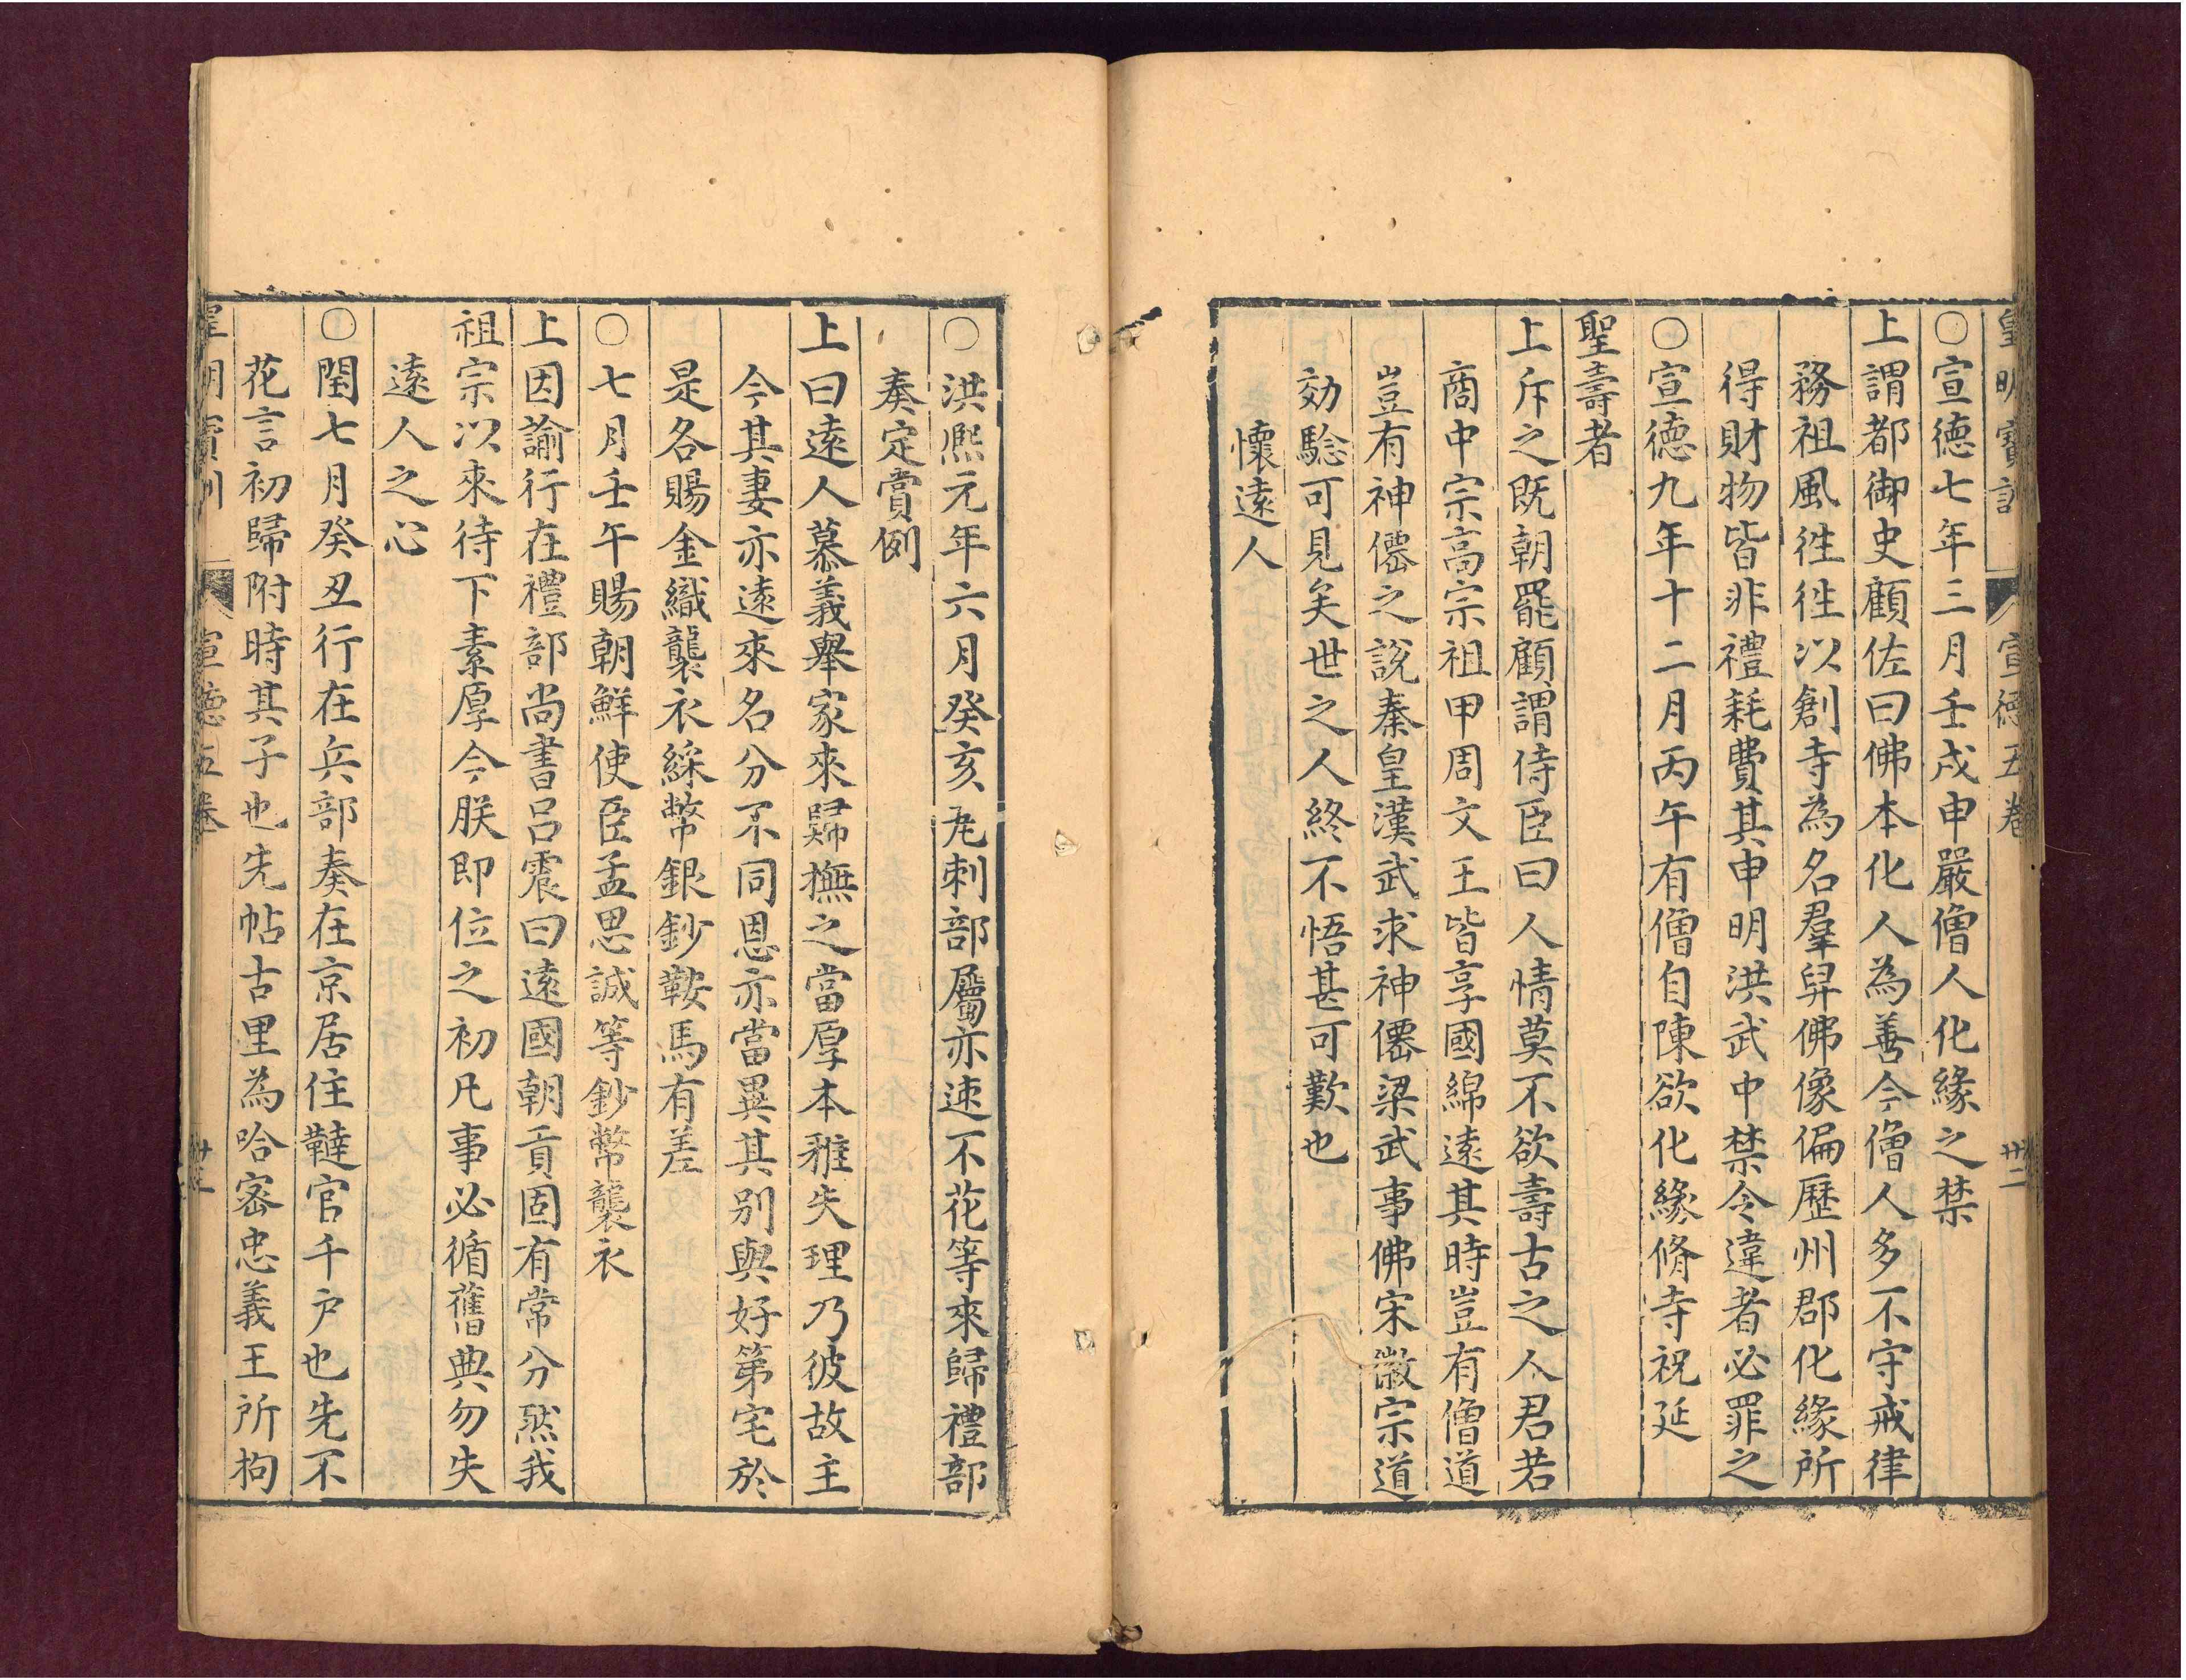 皇明寶訓 宣德五卷 卅二
○宣德七年三月壬戌申嚴僧人化緣之禁
上謂都御史顧佐曰佛本化人為善今僧人多不守戒律
務祖風徃徃以創寺為名羣舁佛像徧歷州郡化緣所
得財物皆非禮耗費其申明洪武中禁令違者必罪之
○宣德九年十二月丙午有僧自陳欲化緣脩寺祝延
聖壽者
上斥之既朝罷顧謂侍臣曰人情莫不欲壽古之人君若
商中宗高宗祖甲周文王皆享國綿遠其時豈有僧道
豈有神僊之說秦皇漢武求神僊梁武事佛宋徽宗道
効騐可見矣世之人終不悟甚可歎也
懷遠人
○洪熈元年六月癸亥兀剌部屬亦速不花等來歸禮部
奏定賞例
上曰遠人慕義舉家來歸撫之當厚本雅失理乃彼故主
今其妻亦遠來名分不同恩亦當異其别與好第宅於
是各賜金織襲衣綵幣銀鈔鞍馬有差
○七月壬午賜朝鮮使臣孟思誠等鈔幣襲衣
上因諭行在禮部尚書呂震曰遠國朝貢固有常分然我
祖宗以來待下素厚今朕即位之初凡事必循舊典勿失
遠人之心
○閏七月癸丑行在兵部奏在京居住韃官千户也先不
花言初歸附時其子也先帖古里為哈密忠義王所拘
皇明寶訓 宣德五卷